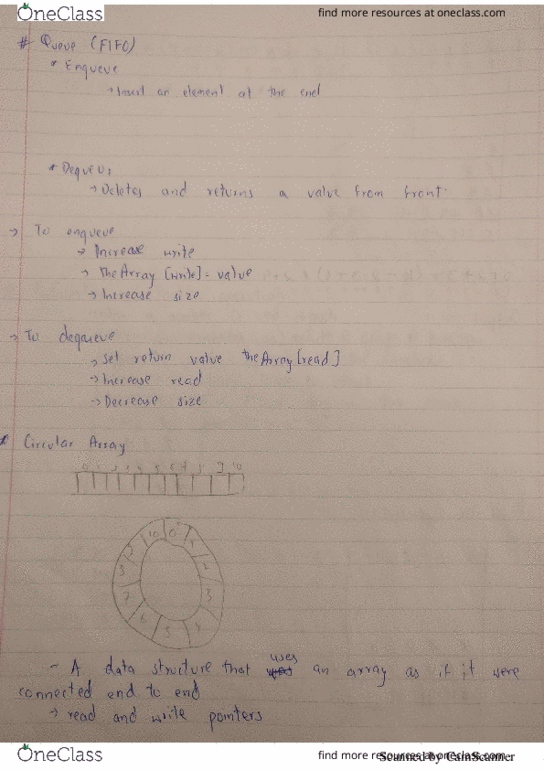 OneClass
find more resources at oneclass.com
# Queue (FIFO)
* Enqueue
→ Insert an element at the end
* Dequeue:
→ Deletes and returns a value from front
→ To enqueue
→ Increase write
→ The Array [write] = value
→ Increase size
→ To dequeue
→ Set return value the Array [read]
→ Increase read
→ Decrease size
* Circular Array
0 1 2 3 4 5 6 7 8 9 10
0 1 2 3 4 5 6 7 8 9 10
- A data structure that uses an array as if it were
connected end to end
→ read and write pointers
OneClass
find more resources at oneclass.com
Scanned by CamScanner